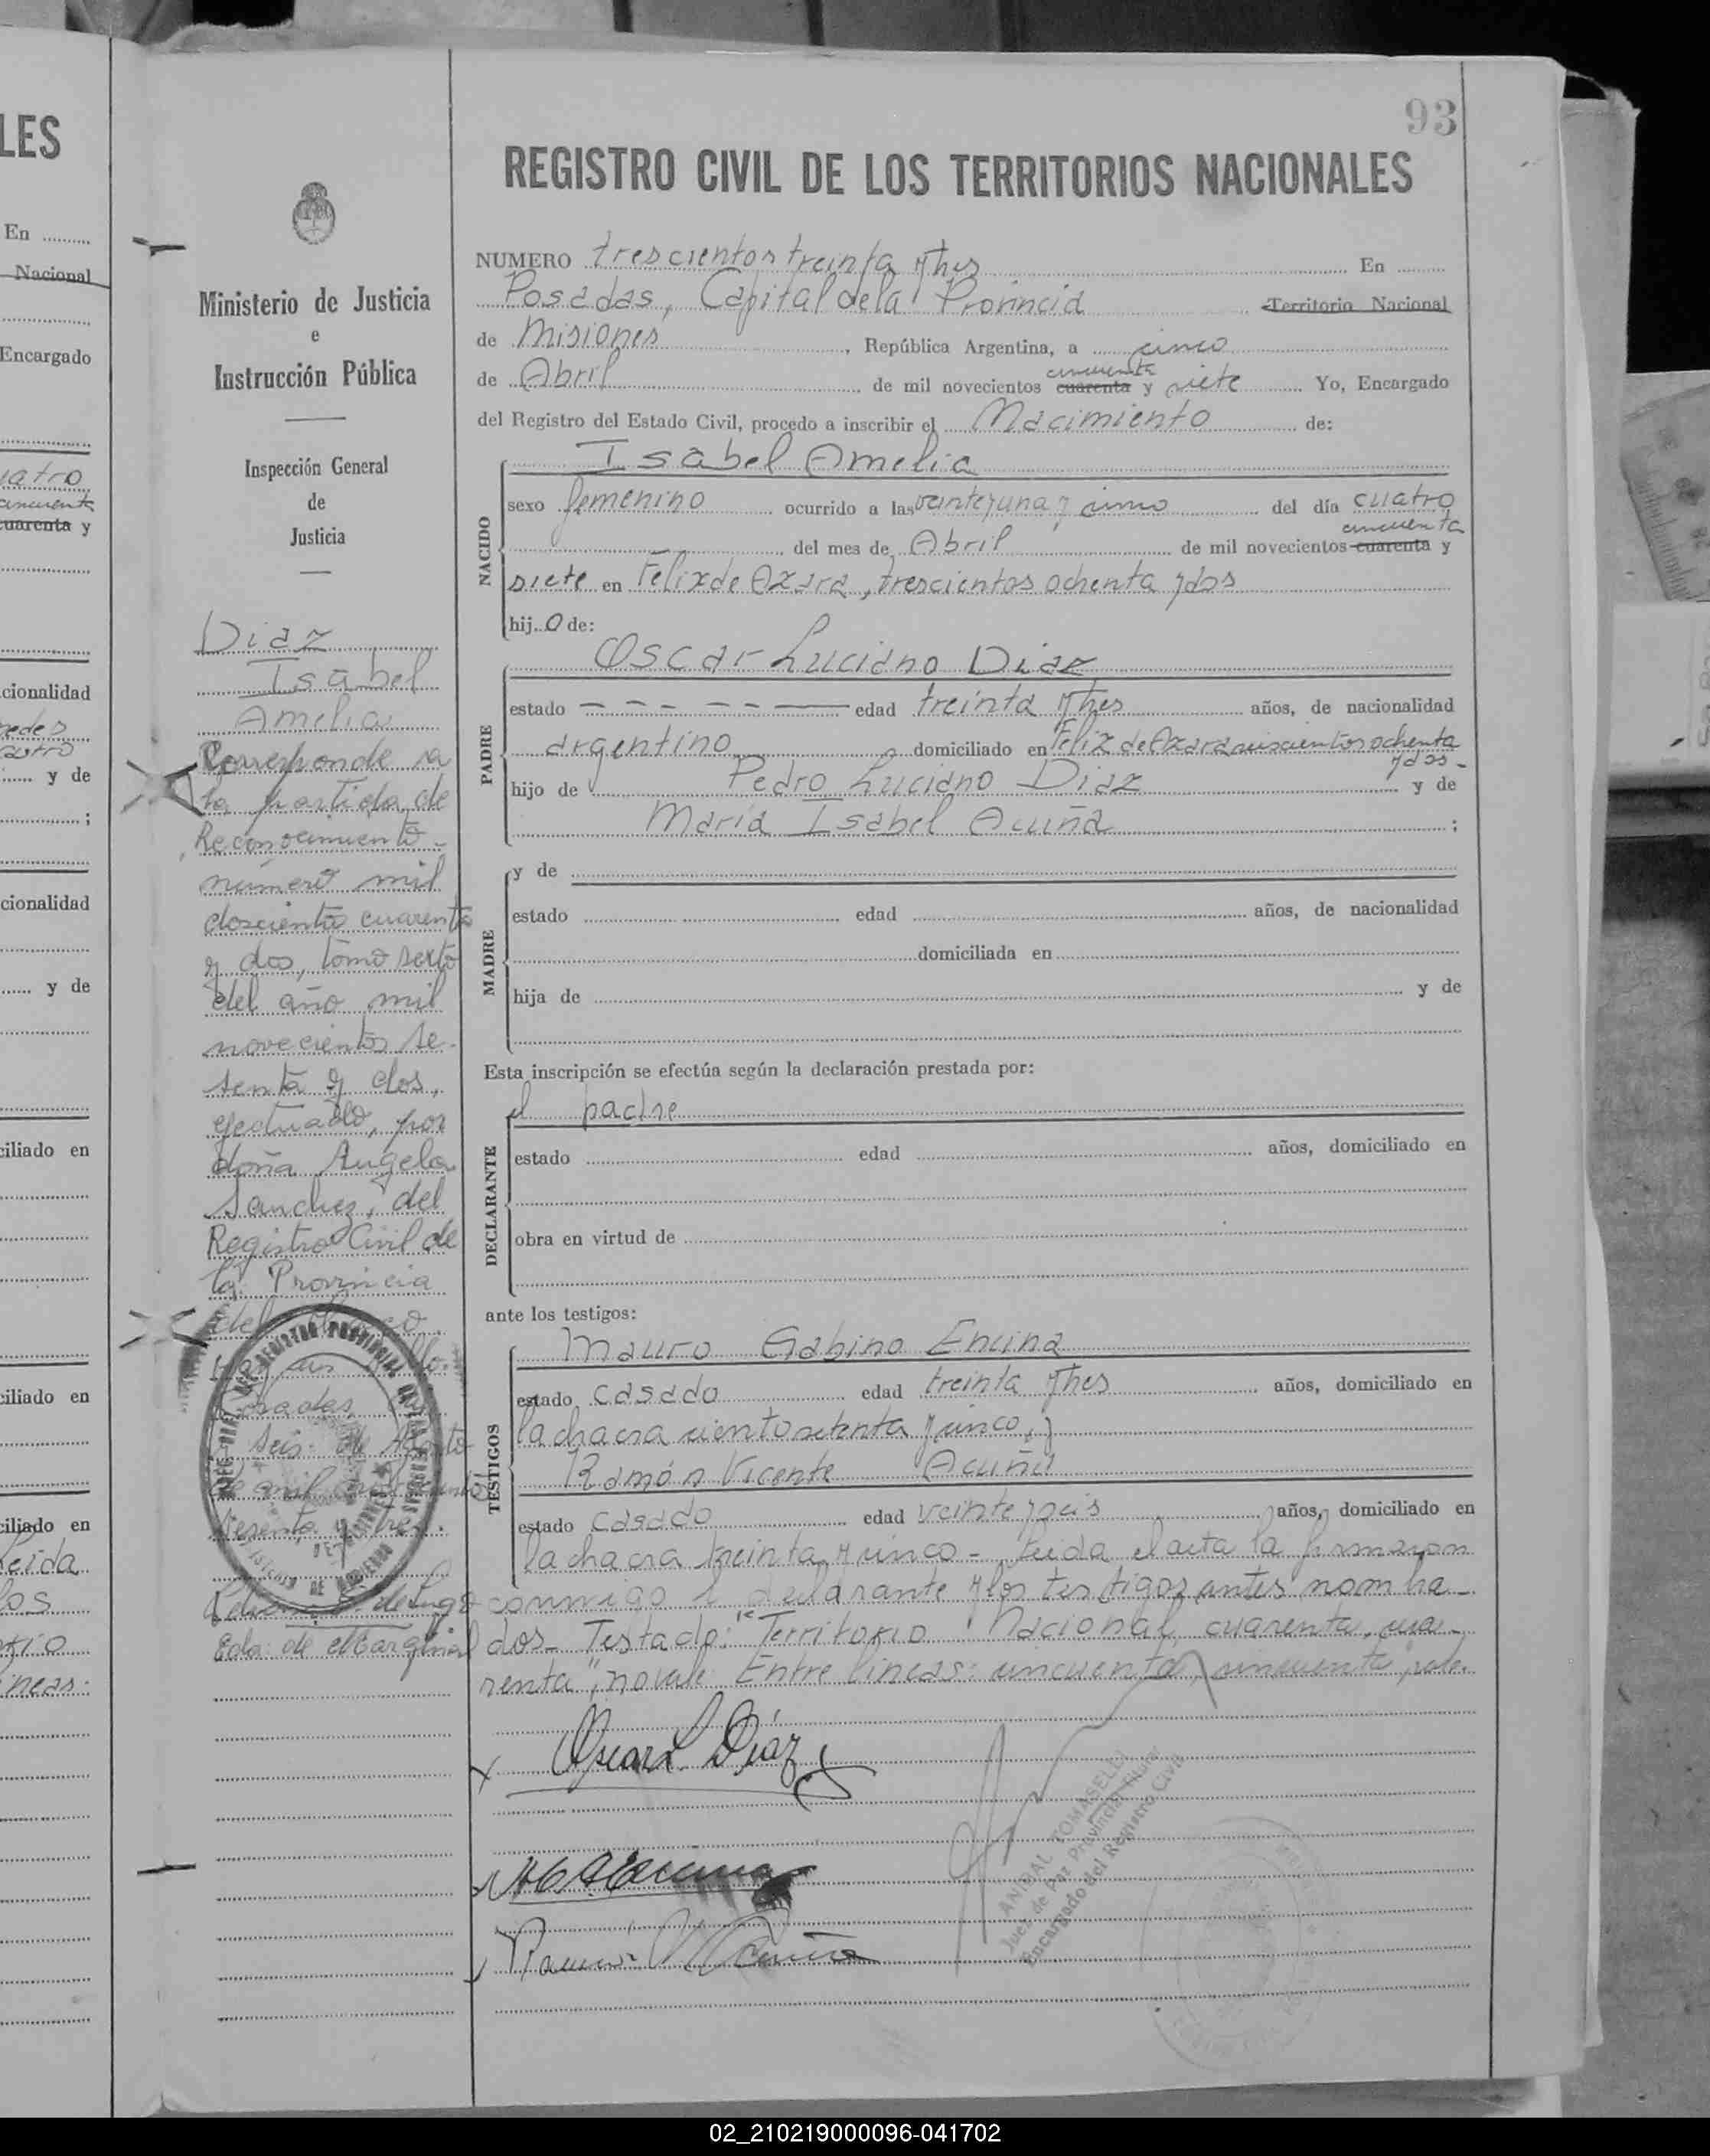 93
REGISTRO CIVIL DE LOS TERRITORIOS NACIONALES
NUMERO trescientos treinta y tres En
Posadas, Capital de la Provincia Territorio Nacional
de Misiones, República Argentina, a cinco
cincuenta
de Abril de mil novecientos cuarenta y siete Yo, Encargado
del Registro del Estado Civil, procedo a inscribir el Nacimiento de:
NACIDO
Isabel Amelia
sexo femenino ocurrido a las veinte y una y cinco del día cuatro
cincuenta
del mes de Abril de mil novecientos cuarenta y
siete en Felix de Azara, trescientos ochenta y dos
hijo de:
PADRE
Oscar Luciano Diaz
estado edad treinta y tres años, de nacionalidad
argentino domiciliado en Felix de Azara trescientos ochenta
y dos-
hijo de Pedro Luciano Diaz y de
María Isabel Acuña ;
MADRE
y de
estado edad años, de nacionalidad
domiciliada en
hija de y de
Esta inscripción se efectúa según la declaración prestada por:
DECLARANTE
el padre
estado edad años, domiciliado en
obra en virtud de
ante los testigos:
TESTIGOS
Mauro Gabino Encina
estado casado edad treinta y tres años, domiciliado en
la chacra ciento setenta y cinco, y
Ramón Vicente Acuña
estado casado edad veinte y seis años, domiciliado en
la chacra treinta y cinco - Leida el acta la firmaron
conmigo el declarante y los testigos antes nombra-
dos- Testado: "Territorio Nacional, cuarenta, cua-
renta", no vale. Entre lineas: cincuenta, cincuenta, vale.
Oscar L. Díaz
Ramón V. Acuña
ANIBAL TOMASELLI
Juez de Paz Provincial Titular
Encargado del Registro Civil
Ministerio de Justicia
e
Instrucción Pública
Inspección General
de
Justicia
Diaz
Isabel
Amelia
Corresponde a
la partida de
Reconocimiento
número mil
doscientos cuarenta
y dos, tomo sexto
del año mil
novecientos se-
senta y dos,
efectuado, por
doña Angela
Sanchez, del
Registro Civil de
la Provincia
del Chaco
Posadas,
seis de Agosto
de mil novecientos
sesenta y tres.
de Lugo
Eda: de Marginal
LES
En
Nacional
Encargado
cuatro
cincuenta
cuarenta y
cionalidad
y de
;
cionalidad
y de
ciliado en
ciliado en
ciliado en
Leida
los
02_210219000096-041702